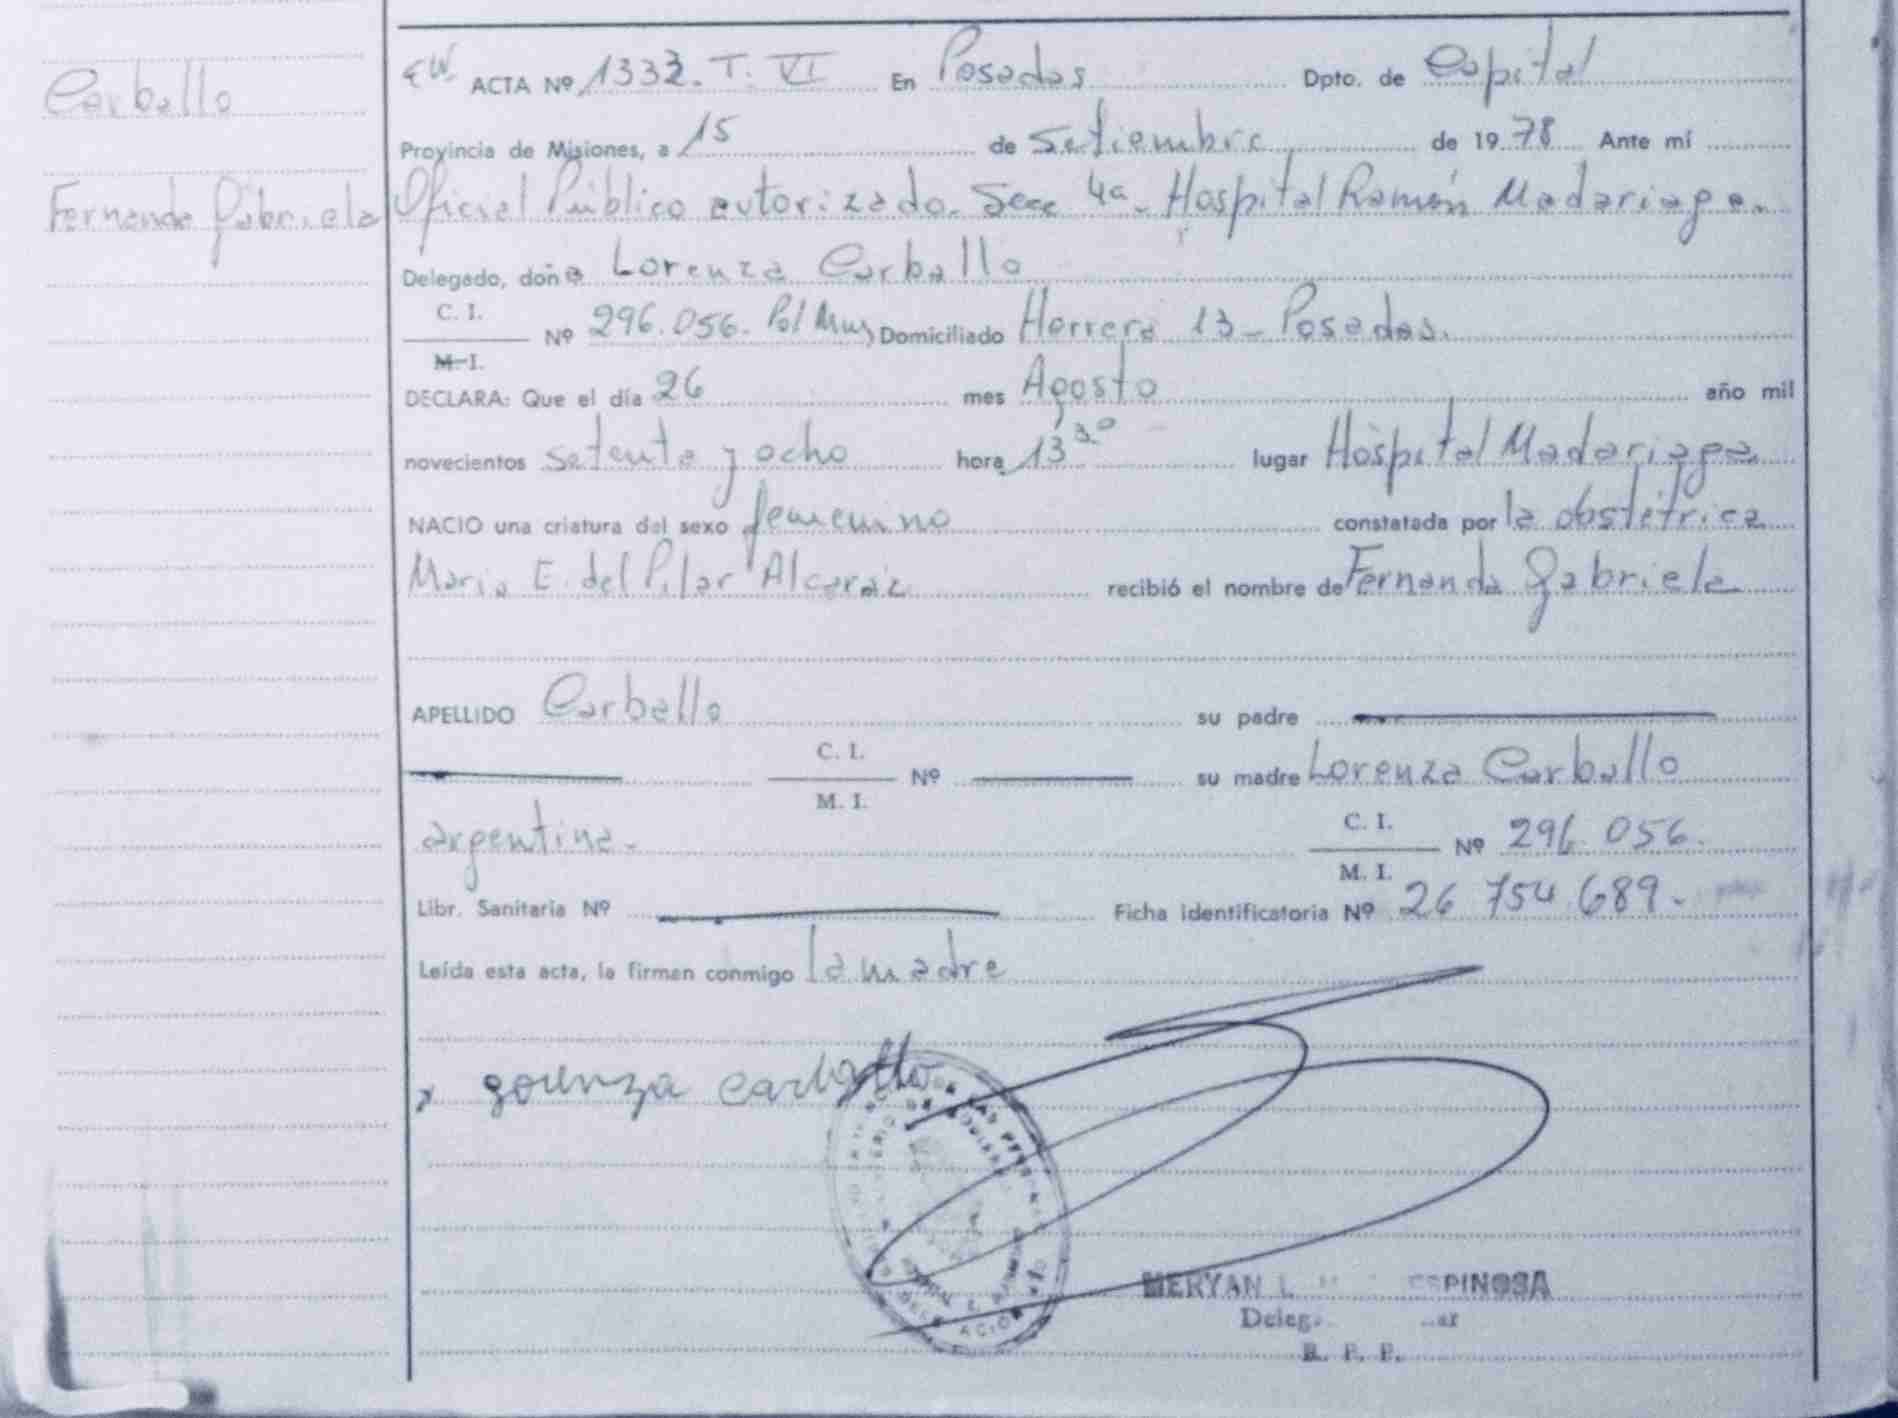 Carballo
Fernanda Gabriela
ACTA Nº 1332. T. VI En Posadas Dpto. de Capital
Provincia de Misiones, a 15 de Setiembre de 1978 Ante mí
Oficial Público autorizado. Secc 4a. Hospital Ramón Madariaga.
Delegado, doña Lorenza Carballo
C. I.
Nº 296.056. Pol Mns Domiciliado Herrera 13 - Posadas.
M. I.
DECLARA: Que el día 26 mes Agosto año mil
novecientos setenta y ocho hora 13 30 lugar Hospital Madariaga
NACIO una criatura del sexo femenino constatada por la obstétrica
Maria E. del Pilar Alcaraz recibió el nombre de Fernanda Gabriela
APELLIDO Carballo su padre
C. I.
Nº su madre Lorenza Carballo
M. I.
argentina.
C. I.
Nº 296.056.
M. I.
Libr. Sanitaria Nº Ficha identificatoria Nº 26 754.689.-
Leída esta acta, la firman conmigo la madre
x Lorenza Carballo
MERYAN L. ESPINOSA
R. P. P.